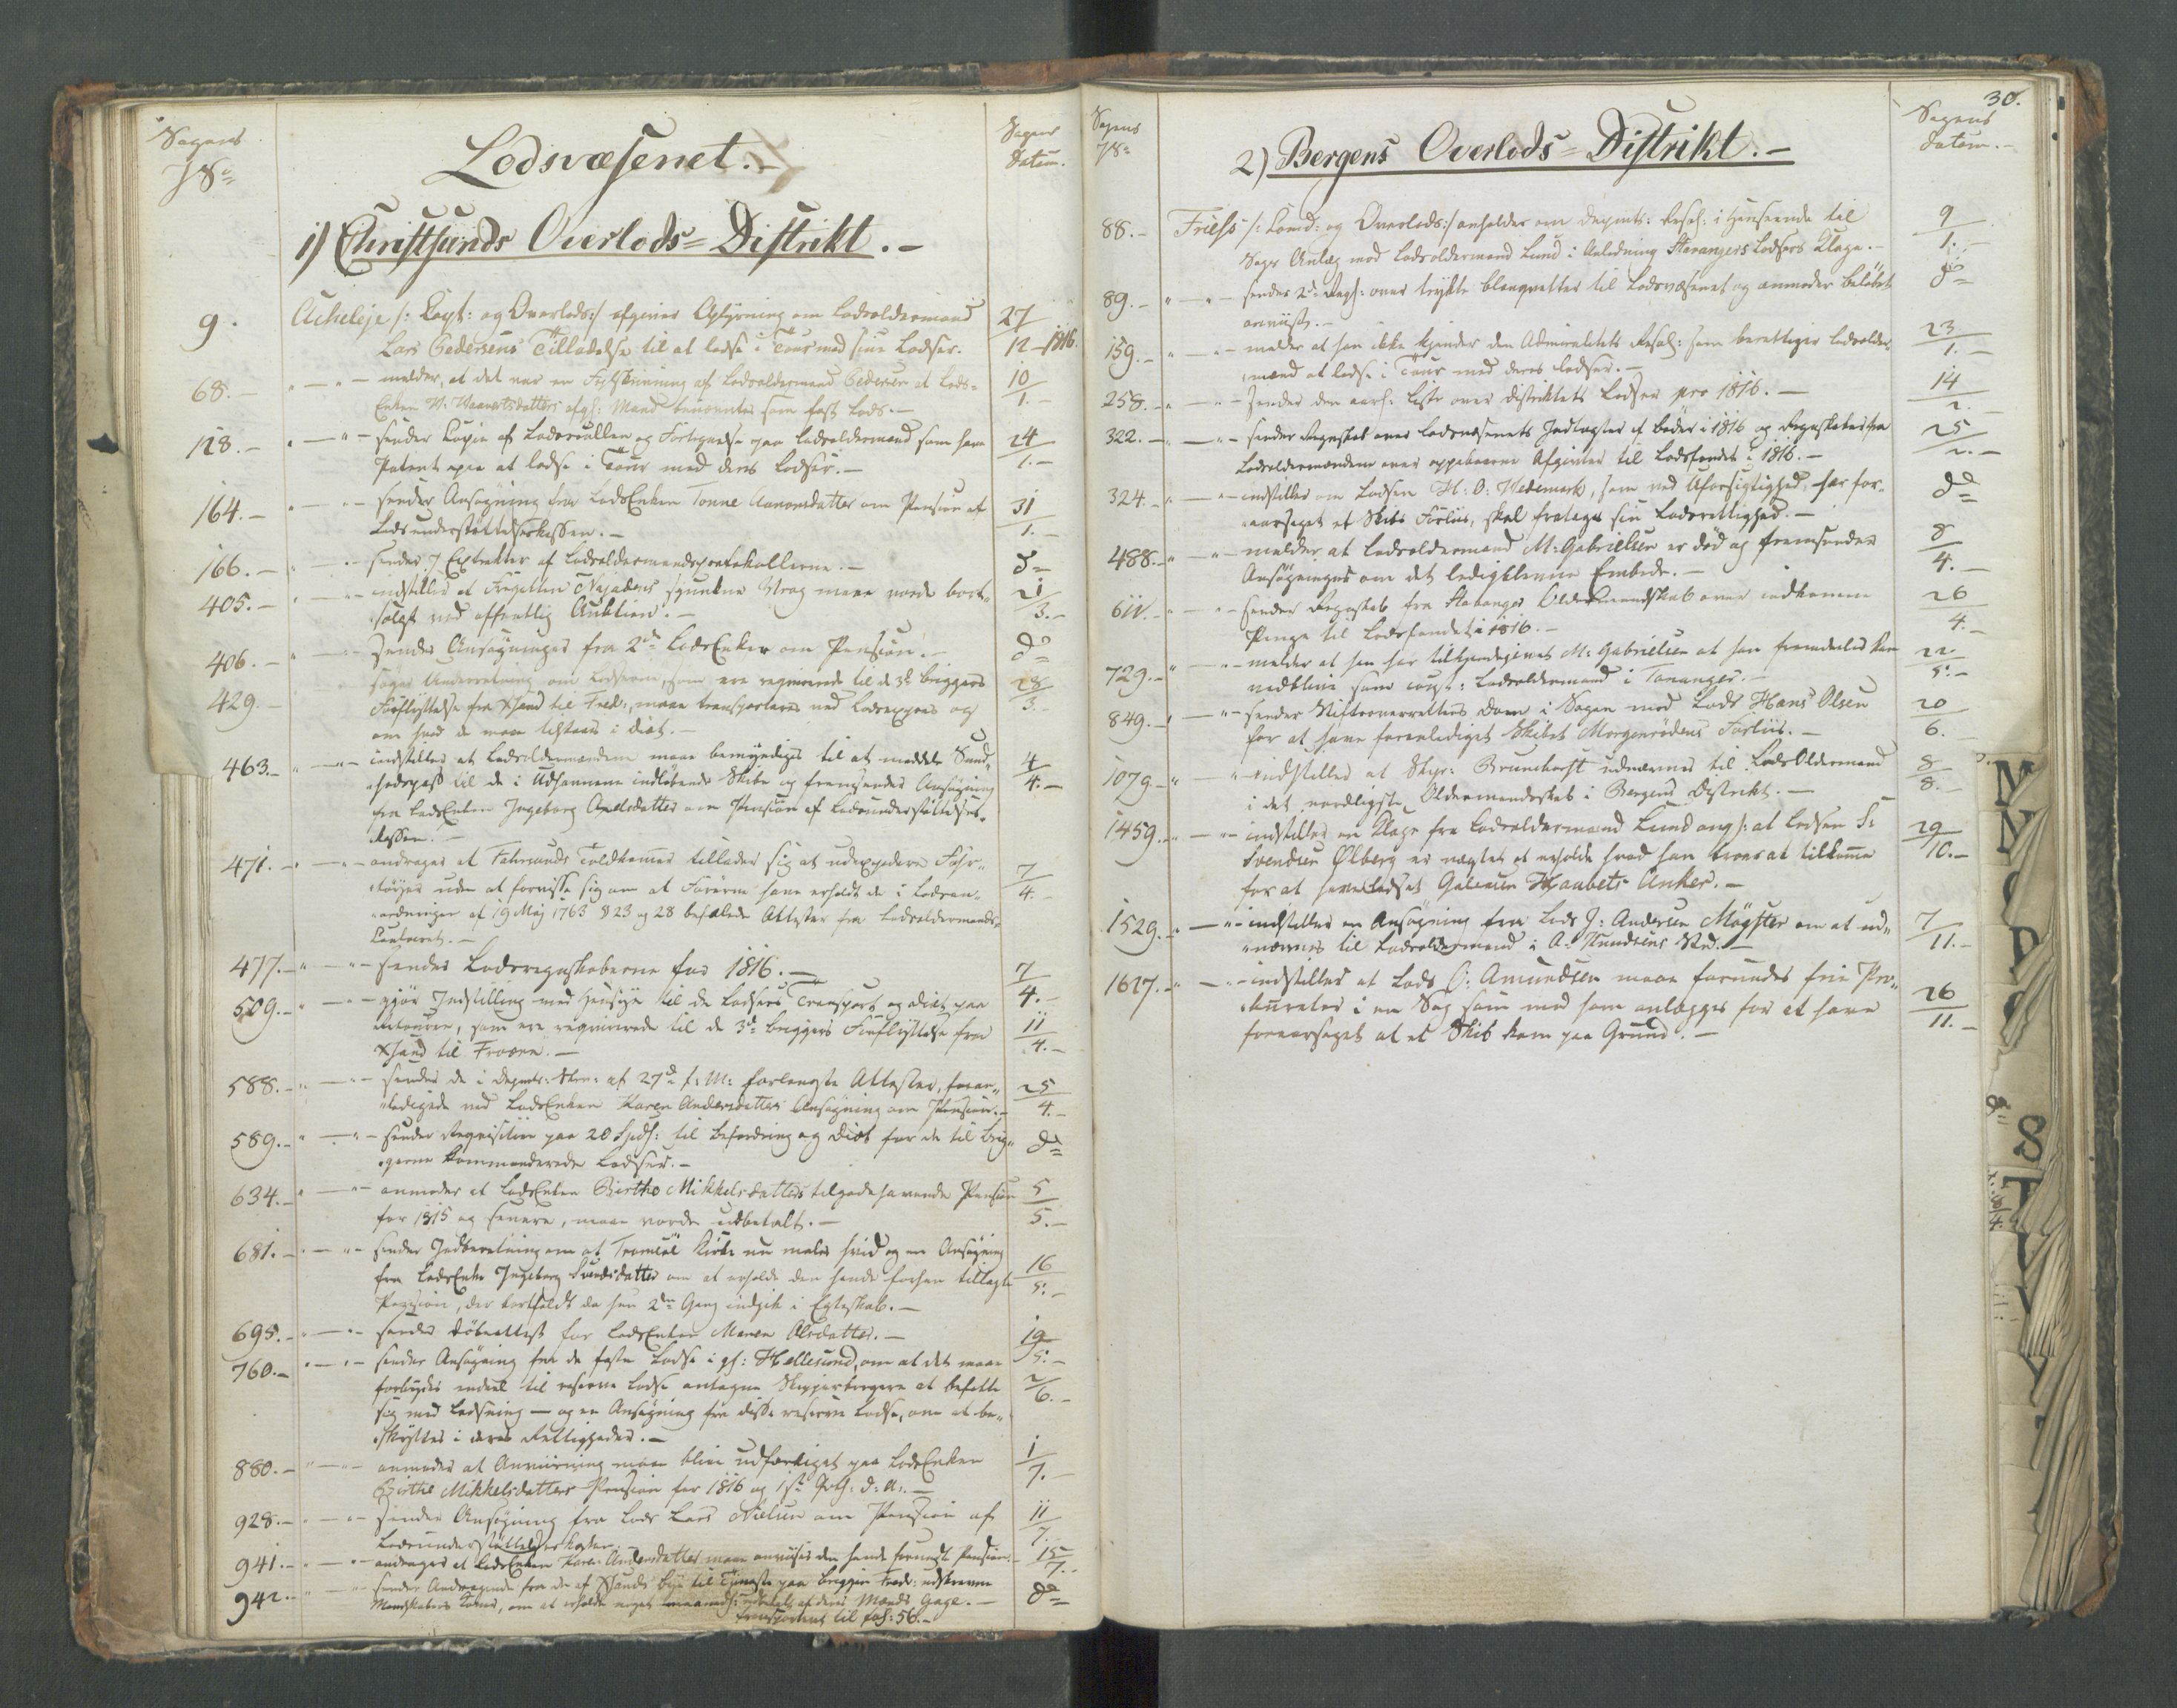 Sagens
No
Lodsvæsenet.
Sagens
Datum.
1) Christsunds Overlods-Distrikt.-
9. Acheleje /: Capt: og Overlods:/ afgiver Oplysning om Lodsoldermand 27
Lars Pedersens Tilladelse til at lodse i Tour med sine Lodser. 12 - 1816.
68.- " — " - melder, at det var en af Lodsoldermand Pedersen at Lods- 10
Enken afg: Mand som fast Lods.- 1.-
128.- " — " - sender Copie af Lodsrullen og Fortegnelse paa Lodsoldermænd som have 24
Patent paa at lodse i Tour med deres Lodser.- 1.-
164.- " — " - sender Ansøgning fra LodsEnken Tonne Aanonsdatter om Pension af 31
Lodsunderstøttelseskassen.- 1.-
166.- " — " - sender 7 Extrakter af Lodsoldermandsprotokollerne.- do
405.- " — " - indstiller at Fregatten Najadens sjunkne Vrag maa vorde bort- 21
solgt ved offentlig Auktion.- 3.-
406.- " — " - Sender Ansøgninger fra 2de LodsEnker om Pension.- do
429.- søger Underretning om Lodserne, som ere reqvirerede til de 3de briggers 28
Forflyttelse fra Xsand til Fred:, maae transporteres med Lodsexpres og 3.-
om hvad de maae tilstaaes i diæt.-
463.- " — " - indstiller at Lodsoldermændene maae bemyndiges til at meddele Sund- 4
hedspass til de i Udhavnene indløbende Skibe og fremsender Ansøgning 4.-
fra LodsEnken Ingeborg Axelsdatter om Pension af Lodsunderstøttelses-
kassen.-
471.- " — " - andrager at Farsunds Toldkammer tillader sig at udexpedere Far- 7
tøyer uden at forvisse sig om at Førerne have erholdt de i Lodsan- 4.-
ordningen af 19 Maj 1763 § 23 og 28 befalede Attester fra Lodsoldermands-
Contoiret.-
477.- " — " - sender Lodsregnskaberne for 1816.- 7
4.-
509.- " — " - gjør Indstilling med Hensyn til de Lodsers Transport og diæt paa
Retouren, som ere reqvirerede til de 3de briggers Forflyttelse fra 11
Xsand til Fraern.- 4.-
588.- " — " - sender de i Depmts: Skr: af 27de f: M: forlangte Attester, foran- 25
ledigede ved LodsEnken Karen Andersdatters Ansøgning om Pension.- 4.-
589.- " — " - sender Reqvisition paa 20 Spd: til befordring og diæt for de til brig- do
gerne kommanderede Lodser.-
634.- " — " - anmoder at LodsEnken Birthe Mikkelsdatters tilgodehavende Pension 5
for 1815 og senere, maa vorde udbetalt.- 5.-
681.- " — " - sender Indberetning om at Tromøe Kirke nu males hvid og en Ansøgning 16
fra LodsEnke Ingeborg Svendsdatter om at erholde den hende forhen tillagte 5.-
Pension, der bortfaldt da hun 2den Gang indgik i Egteskab.-
695.- " — " - sender døbeattest for LodsEnken Maren Olsdatter.- 19
5.-
760.- " — " - sender Ansøgning fra de faste Lodse i gl: Hellesund, om at det maae 2
forbydes endeel til reserve Lodse antagne Skipperborgere at befatte 6.-
sig med Lodsning — og en Ansøgning fra disse reserve Lodse, om at be-
skyttes i deres Rettigheder.-
880.- " — " - anmoder at Anviisning maa blive udfærdiget paa LodsEnken 1
Birthe Mikkelsdatters Pension for 1816 og 1ste d: A:.- 7.-
928.- " — " - sender Ansøgning fra Lods Lars Nielsen om Pension af 11
Lodsunderstøttelseskassen. 7.-
941.- " — " - andrager at LodsEnken Karen Andersdatter maa anvises den hende forundt Pension.- 15
7.-
942.- " — " - sender Andragende fra de af Xsands bye til Tjeneste paa briggen Fredr: udskrevne do
Mandskabers Koner, om at erholde noget maanedl: udbetalt af deres Mænds Gage.-
transporteret til fol: 56.-
30.
Sagens
No
2) Bergens Overlods-Distrikt.-
Sagens
Datum.-
88.- Friess /: Comd: og Overlods:/ anholder om Depmts: Resol: i Henseende til 9
Sags Anlæg mod Lodsoldermand Lund i Anledning Stavangers Lodsers Klage.- 1.-
89.- " — " - sender 2de Regn: over trykte blanqvetter til Lodsvæsenet og anmoder beløbet do
anviist.-
159.- " — " - melder at han ikke kjender den Admiralitets Resol: som berettiger Lodsolder- 23
mænd at lodse i Tour med deres Lodser.- 1.-
258.- " — " - Sender den aarl: Liste over distriktets Lodser pro 1816.- 14
2.-
322.- " — " - sender Regnskab over Lodsvæsenets Indtægter af bøder i 1816 og Regnskaber fra 25
Lodsoldermændene over oppebaarne Afgivter til Lodsfondet i 1816.- 2.-
324.- " — " - indstiller om Lodsen H: O: Wedemark, som ved Uforsigtighed har for- do
aarsaget et Skibs Forliis, skal fratages sin Lodsrettighed.-
488.- " — " - melder at Lodsoldermand M: Gabrielsen er død og fremsender 8
Ansøgninger om det ledigblevne Embede.- 4.-
611.- " — " - sender Regnskab fra Stavanger Oldermandskab over indkomne 26
Penge til Lodsfondet i 1816.- 4.-
729.- " — " - melder at han har tilkjendegivet M: Gabrielsen at han fremdeles kan 22
vedblive som const: Lodsoldermand i Tananger.- 5.-
849.- " — " - sender Stiftsoverrettens Dom i Sagen mod Lods Hans Olsen 20
for at have foranlediget Skibet Morgenrødens Forliis.- 6.-
1079.- " — " - indstiller at Skpr: Brunchorst udnævnes til LodsOldermand 8
i det nordligste Oldermandskab i Bergens Distrikt.- 8.-
1459.- " — " - indstiller en Klage fra Lodsoldermand Lund ang: at Lodsen S: 29
Svendsen Ølberg er nægtet at erholde hvad han troer at tilkomme 10.-
for at have lodset Galeasen Haabets Anker.-
1529.- " — " - indstiller en Ansøgning fra Lods J: Andersen Møgster om at ud- 7
nævnes til Lodsoldermand i A: Knudsens Sted.- 11.-
1627.- " — " - indstiller at Lods O: Amundsen maae forundes frie Pro- 26
kurator i en Sag som mod ham anlægges for at have 11.-
foraarsaget at et Skib kom paa Grund.-
M
N
O
P
S
T
V